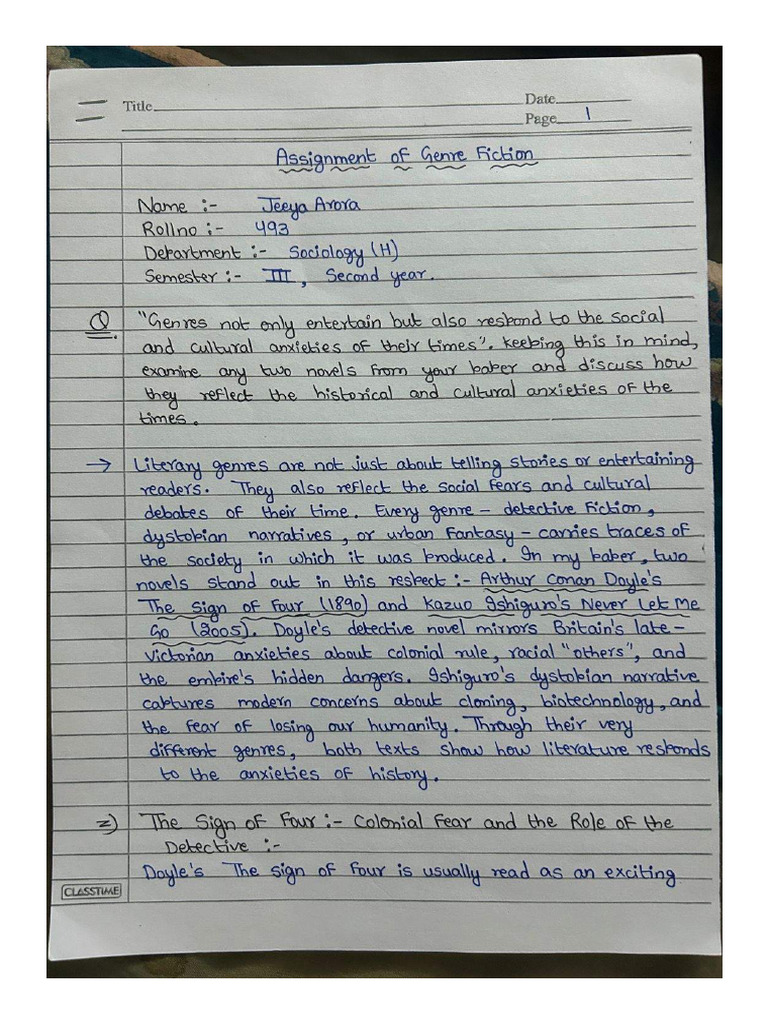 Title
Date
Page 1
Assignment of Genre Fiction
Name :- Jeeya Arora
Rollno :- 493
Department :- Sociology (H)
Semester :- III, Second year.
Q "Genres not only entertain but also respond to the social
and cultural anxieties of their times". Keeping this in mind,
examine any two novels from your paper and discuss how
they reflect the historical and cultural anxieties of the
times.
→ Literary genres are not just about telling stories or entertaining
readers. They also reflect the social fears and cultural
debates of their time. Every genre – detective fiction,
dystopian narratives, or urban fantasy – carries traces of
the society in which it was produced. In my paper, two
novels stand out in this respect :- Arthur Conan Doyle's
The Sign of Four (1890) and Kazuo Ishiguro's Never Let Me
Go (2005). Doyle's detective novel mirrors Britain's late-
Victorian anxieties about colonial rule, racial "others", and
the empire's hidden dangers. Ishiguro's dystopian narrative
captures modern concerns about cloning, biotechnology, and
the fear of losing our humanity. Through their very
different genres, both texts show how literature responds
to the anxieties of history.
2) The Sign of Four :- Colonial Fear and the Role of the
Detective :-
Doyle's The sign of Four is usually read as an exciting
CLASSTIME